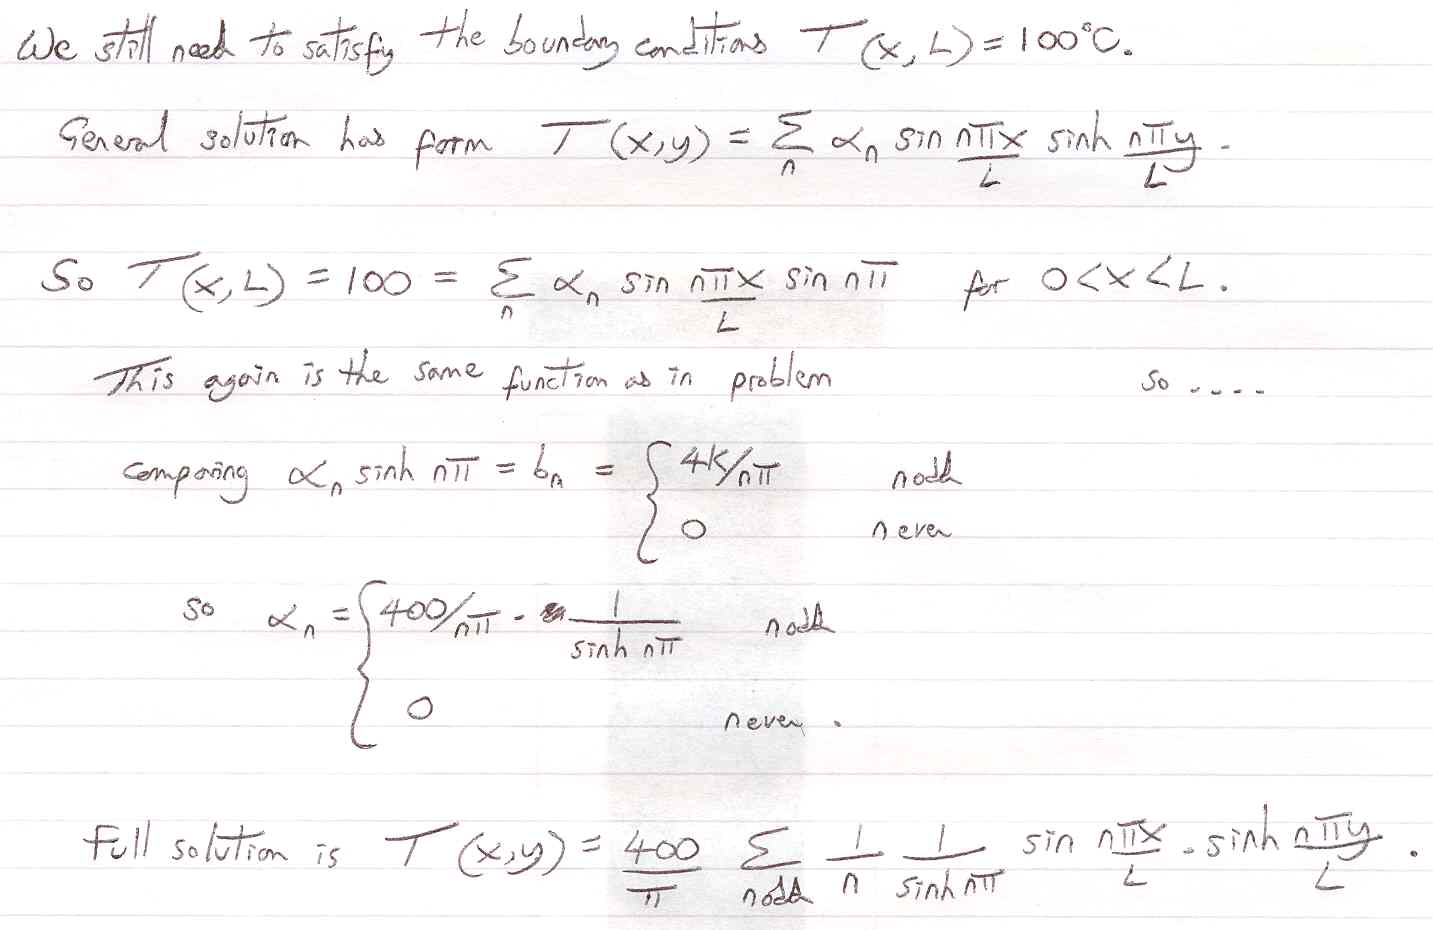 We still need to satisfy the boundary conditions T(x, L) = 100°C.
General solution has form T(x,y) = Σ_n α_n sin nπx/L sinh nπy/L.
So T(x, L) = 100 = Σ_n α_n sin nπx/L sin nπ for 0<x<L.
This again is the same function as in problem so ....
comparing α_n sinh nπ = b_n = { 4k/nπ n odd
0 n even
so α_n = { 400/nπ . 1/sinh nπ n odd
0 n even.
Full solution is T(x,y) = 400/π Σ_{n odd} 1/n 1/sinh nπ sin nπx/L . sinh nπy/L.